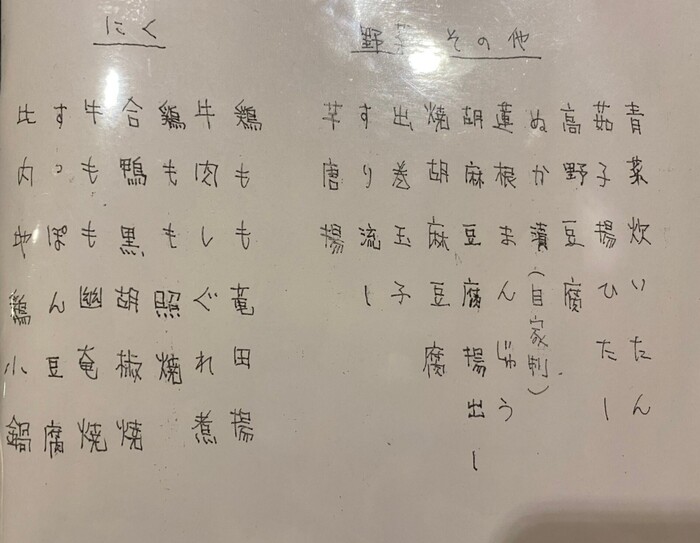 野菜 その他
青菜炊いたん
茄子揚ひたし
高野豆腐
ぬか漬(自家制)
蓮根まんじゅう
胡麻豆腐揚出し
焼胡麻豆腐
出巻玉子
すり流し
芋唐揚
にく
鶏もも竜田揚
牛肉しぐれ煮
鶏もも照焼
合鴨黒胡椒焼
牛もも幽奄焼
すっぽん豆腐
比内地鶏小鍋